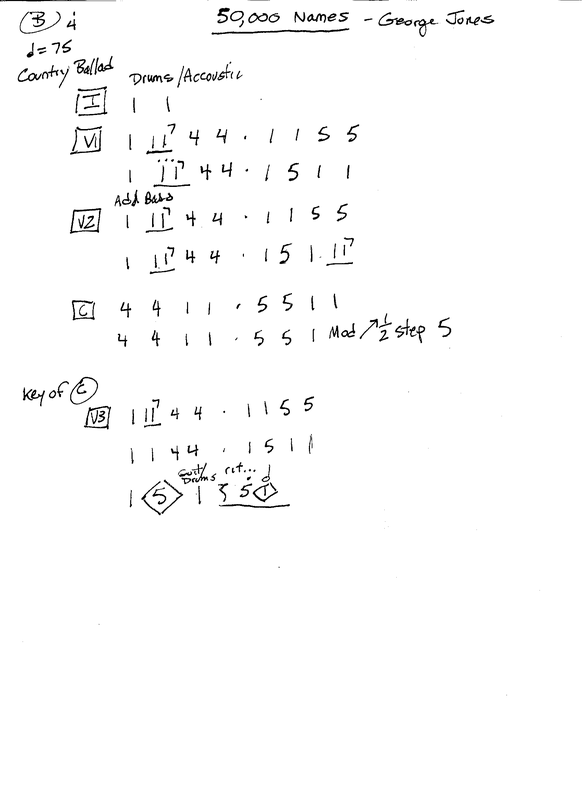 B 4/4 50,000 Names - George Jones
d = 75
Country Ballad Drums/Accoustic
I 1 1
V1 1 11⁷ 4 4 . 1 1 5 5
1 11⁷ 4 4 . 1 5 1 1
Add Bass
V2 1 11⁷ 4 4 . 1 1 5 5
1 11⁷ 4 4 . 1 5 1 11⁷
C 4 4 1 1 . 5 5 1 1
4 4 1 1 . 5 5 1 Mod ↗ 1/2 step 5
Key of C
V3 1 11⁷ 4 4 . 1 1 5 5
1 1 4 4 . 1 5 1 1
Guit/ rit...
Drums
1 5 1 5 1